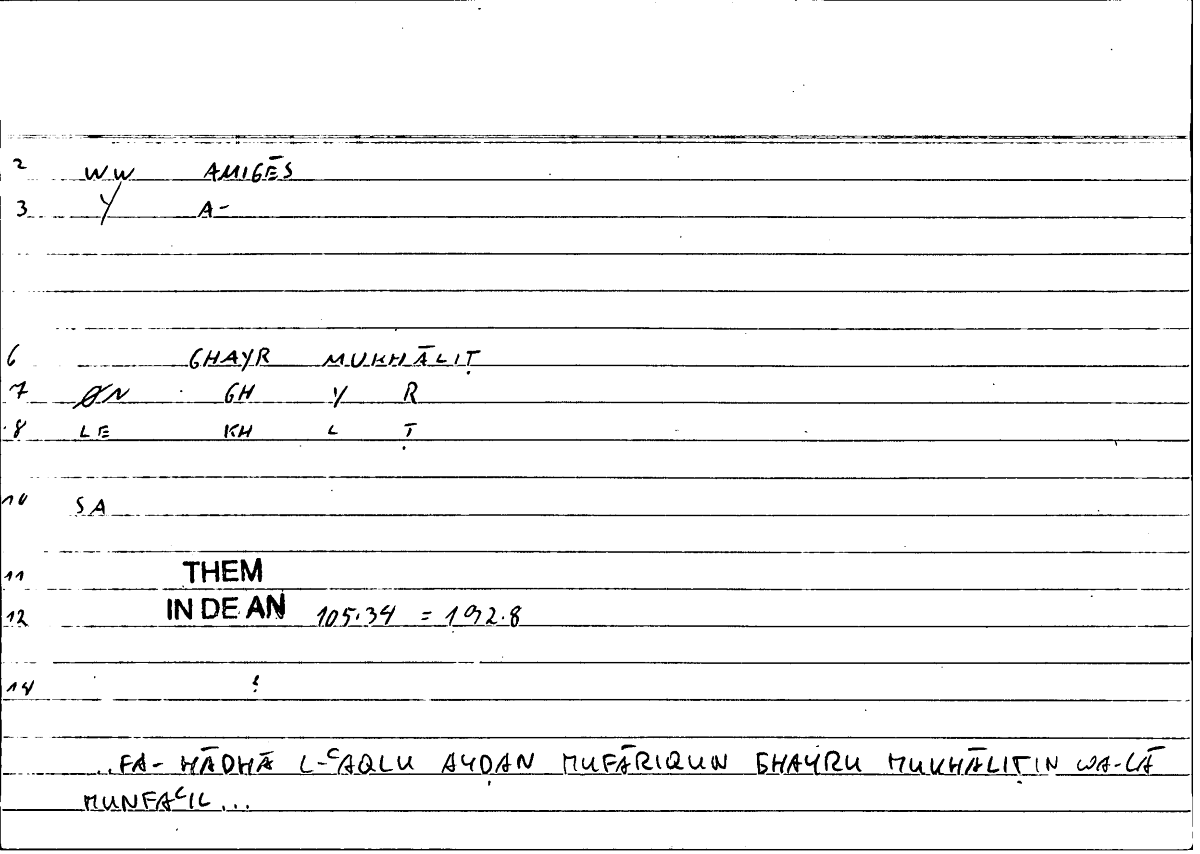 2 WW AMIGĒS
3 Y A-
6 GHAYR MUKHĀLIṬ
7 ØN GH Y R
8 LE KH L Ṭ
10 SA
11 THEM
12 IN DE AN 105.34 = 192.8
14 :
..FA-HĀDHĀ L-ʿAQLU AYḌAN MUFĀRIQUN GHAYRU MUKHĀLIṬIN WA-LĀ
MUNFAʿIL...